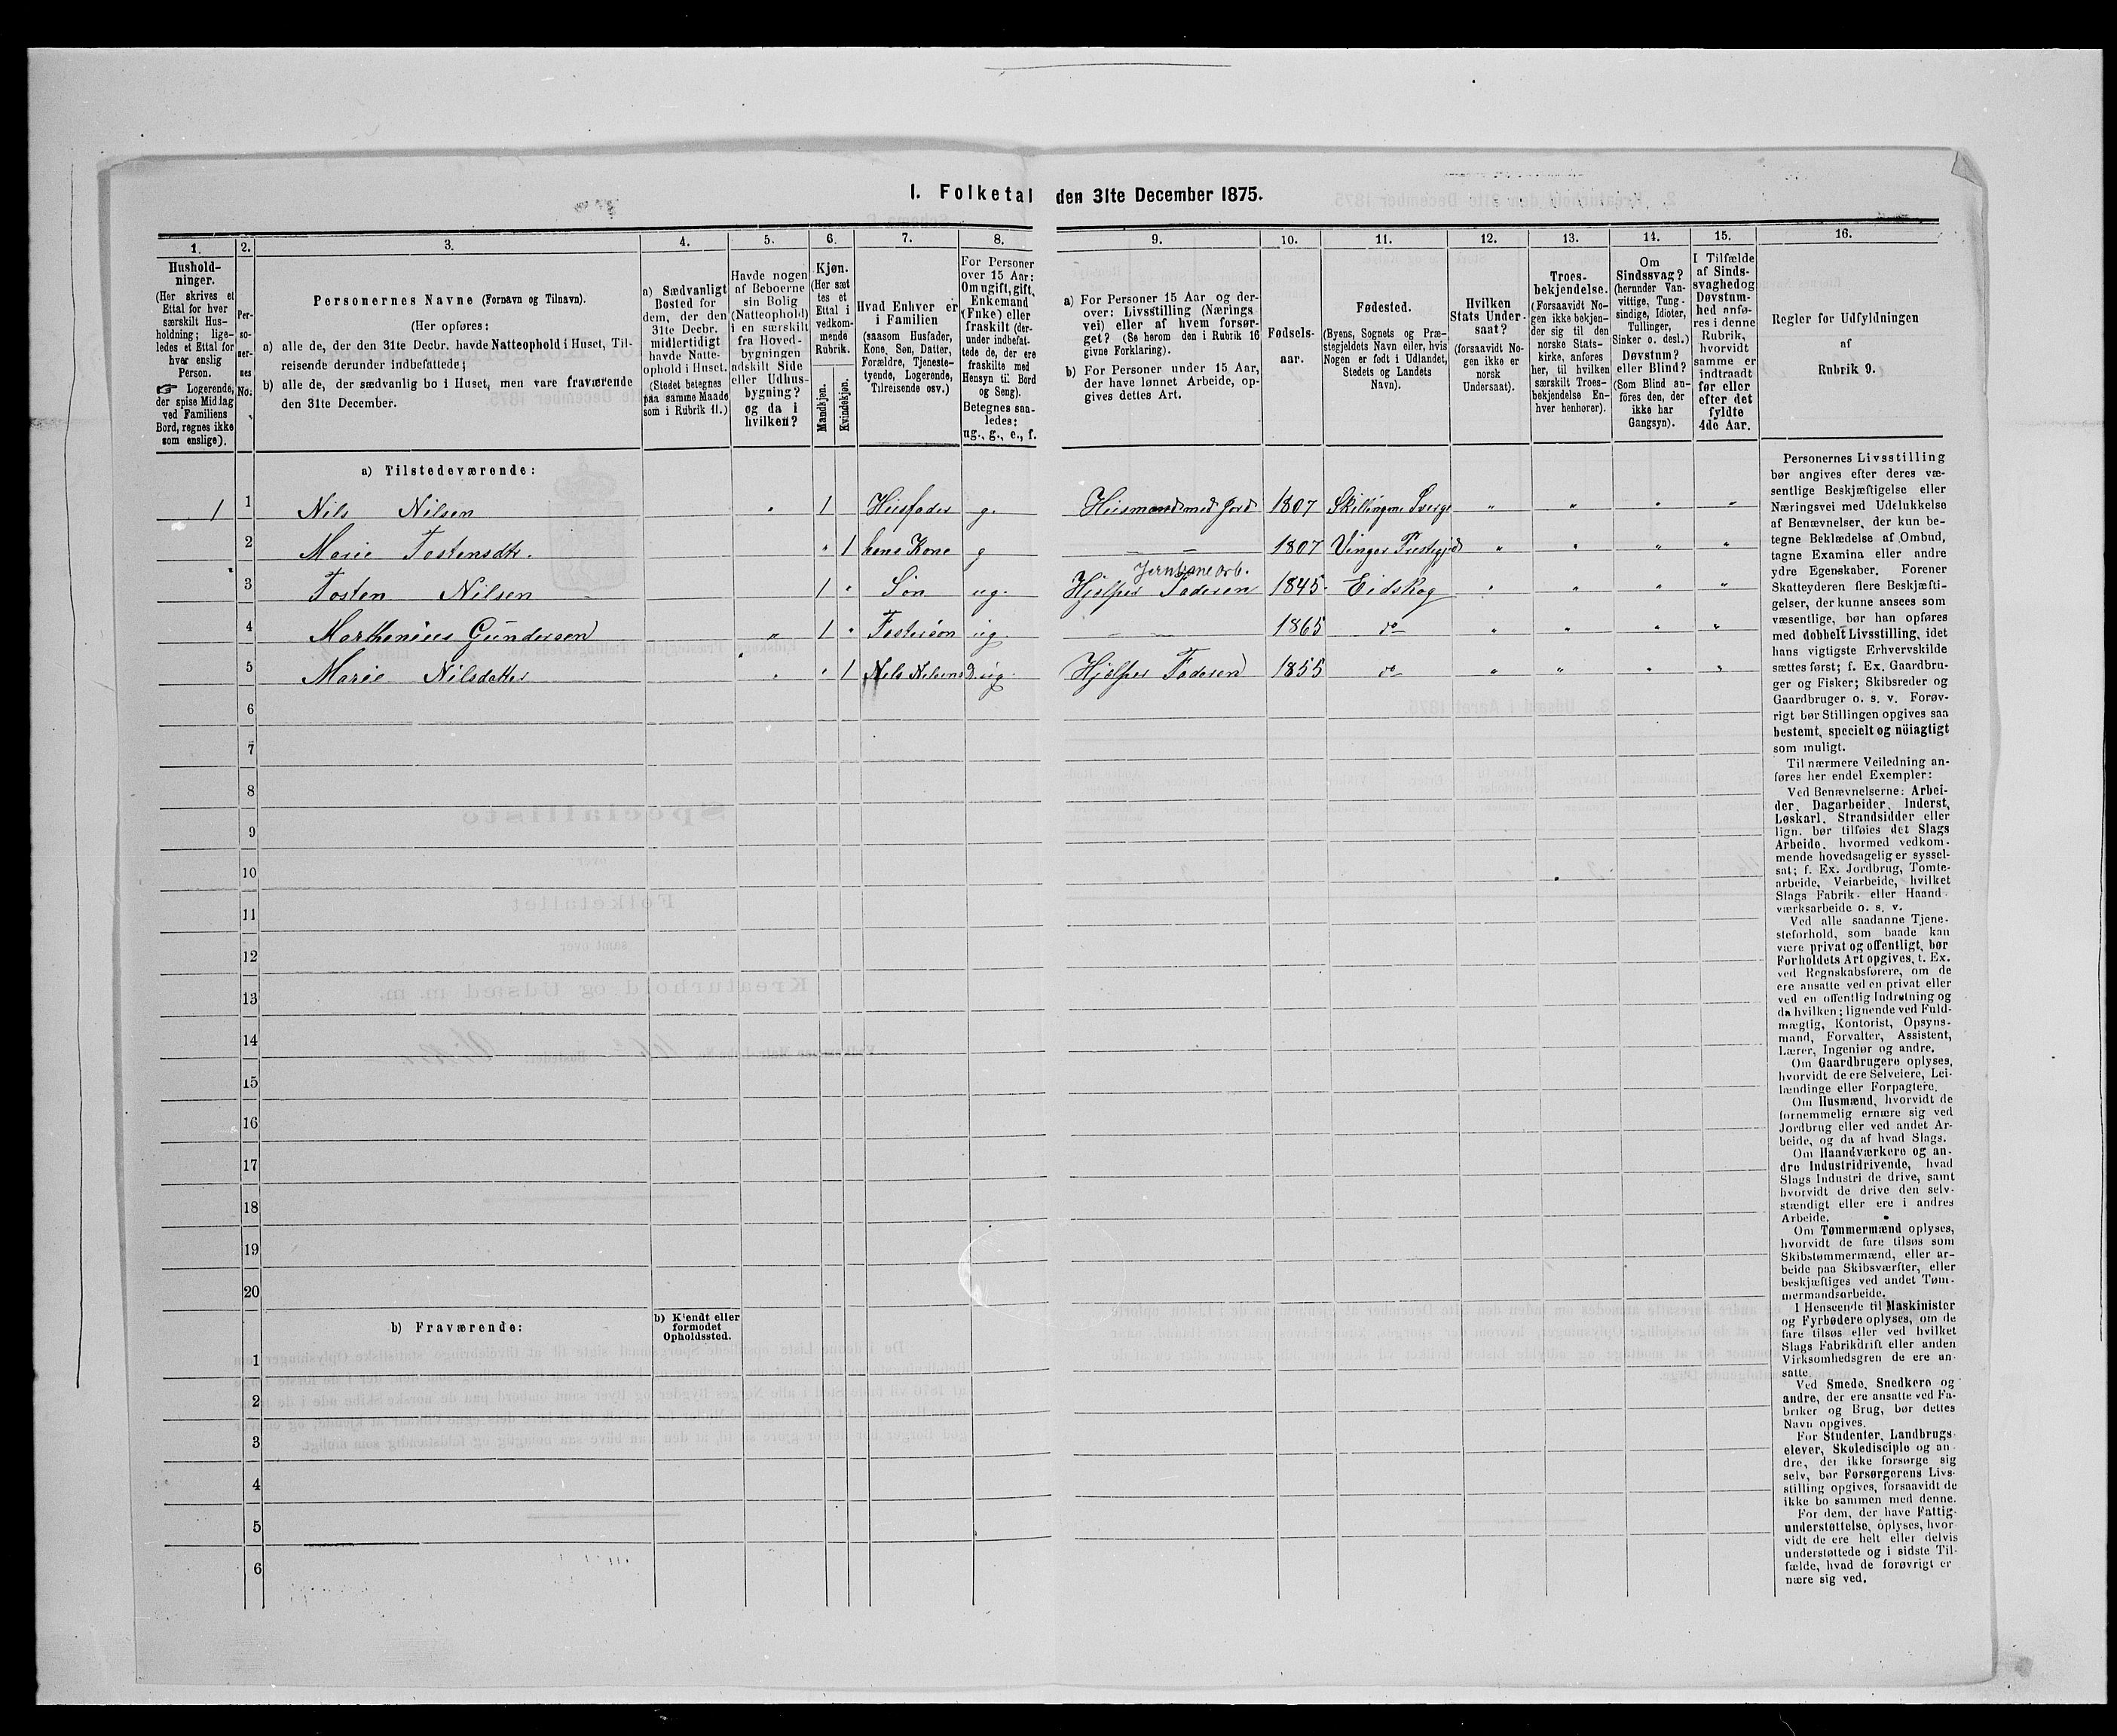 I. Folketal den 31te December 1875.
1.
2.
3.
4.
5.
6.
7.
8.
9.
10.
11.
12.
13.
14.
15.
16.
Hushold-
ninger.
(Her skrives et
Ettal for hver
særskilt Hus-
holdning; lige-
ledes et Ettal for
hver enslig
Person.
☞ Logerende,
der spise Middag
ved Familiens
Bord, regnes ikke
som enslige).
Per-
so-
ner-
nes
No.
Personernes Navne (Fornavn og Tilnavn).
(Her opføres:
a) alle de, der den 31te Decbr. havde Natteophold i Huset, Til-
reisende derunder indbefattede;
b) alle de, der sædvanlig bo i Huset, men vare fraværende
den 31te December.
a) Sædvanligt
Bosted for
dem, der den
31te Decbr.
midlertidigt
havde Natte-
ophold i Huset.
(Stedet betegnes
paa samme Maade
som i Rubrik 11.)
Havde nogen
af Beboerne
sin Bolig
(Natteophold)
i en særskilt
fra Hoved-
bygningen
adskilt Side
eller Udhus-
bygning?
og da i
hvilken?
Kjøn.
(Her sæt
tes et
Ettal i
vedkom-
mende
Rubrik.
Mandkjøn.
Kvindekjøn.
Hvad Enhver er
i Familien
(saasom Husfader,
Kone, Søn, Datter,
Forældre, Tjeneste-
tyende, Logerende,
Tilreisende osv.)
For Personer
over 15 Aar:
Om ugift, gift,
Enkemand
(Enke) eller
fraskilt (der-
under indbefat-
tede de, der ere
fraskilte med
Hensyn til Bord
og Seng).
Betegnes saa-
ledes:
ug., g., e., f.
a) For Personer 15 Aar og der-
over: Livsstilling (Nærings
vei) eller af hvem forsør-
get? (Se herom den i Rubrik 16
givne Forklaring).
b) For Personer under 15 Aar,
der have lønnet Arbeide, op-
gives dettes Art.
Fødsels-
aar.
Fødested.
(Byens, Sognets og Præ-
stegjeldets Navn eller, hvis
Nogen er født i Udlandet,
Stedets og Landets
Navn).
Hvilken
Stats Under-
saat?
(forsaavidt No-
gen ikke er
norsk
Undersaat).
Troes-
bekjendelse.
(Forsaavidt No-
gen ikke bekjen-
der sig til den
norske Stats-
kirke, anføres
her, til hvilken
særskilt Troes-
bekjendelse En-
hver henhører).
Om
Sindssvag?
(herunder Van-
vittige, Tung-
sindige, Idioter,
Tullinger,
Sinker o. desl.)
Døvstum?
eller Blind?
(Som Blind an-
føres den, der
ikke har
Gangsyn).
I Tilfælde
af Sinds-
svaghed og
Døvstum-
hed anfø-
res i denne
Rubrik,
hvorvidt
samme er
indtraadt
før eller
efter det
fyldte
4de Aar.
Regler for Udfyldningen
af
Rubrik 9.
a) Tilstedeværende:
1 1 Nils Nilsen „ 1 Husfader g. Husmand med Jord 1807 Skillingme Sverge „ „ „ „
2 Marie Tostensdtr. „ 1 hans Kone g — — 1807 Vinger Prestegjeld „ „ „ „
Jernbanearb.
3 Tosten Nilsen 1 „ Søn ug. Hjelper Faderen 1845 Eidskog „ „ „ „
4 Marthenius Gundersen „ 1 „ Fostersøn ug. — — 1865 do „ „ „ „
5 Marie Nilsdatter „ „ 1 Nils Nilsens D. ug. Hjælper Faderen 1855 do „ „ „ „
6
7
8
9
10
11
12
13
14
15
16
17
18
19
20
b) Fraværende:
b) Kjendt eller
formodet
Opholdssted.
1
2
3
4
5
6
Personernes Livsstilling
bør angives efter deres væ-
sentlige Beskjæftigelse eller
Næringsvei med Udelukkelse
af Benævnelser, der kun be-
tegne Beklædelse af Ombud,
tagne Examina eller andre
ydre Egenskaber. Forener
Skatteyderen flere Beskjæfti-
gelser, der kunne ansees som
væsentlige, bør han opføres
med dobbelt Livsstilling, idet
hans vigtigste Erhvervskilde
sættes først; f. Ex. Gaardbru-
ger og Fisker; Skibsreder og
Gaardbruger o. s. v. Forøv-
rigt bør Stillingen opgives saa
bestemt, specielt og nöiagtigt
som muligt.
Til nærmere Veiledning an-
føres her endel Exempler:
Ved Benævnelserne: Arbei-
der, Dagarbeider, Inderst,
Løskarl, Strandsidder eller
lign. bør tilføies det Slags
Arbeide, hvormed vedkom-
mende hovedsagelig er syssel-
sat; f. Ex. Jordbrug, Tomte-
arbeide, Veiarbeide, hvilket
Slags Fabrik- eller Haand-
værksarbeide o. s. v.
Ved alle saadanne Tjene-
steforhold, som baade kan
være privat og offentligt, bør
Forholdets Art opgives, t. Ex.
ved Regnskabsførere, om de
ere ansatte ved en privat eller
ved en offentlig Indretning og
da hvilken; lignende ved Fuld-
mægtig, Kontorist, Opsyns-
mand, Forvalter, Assistent,
Lærer, Ingeniør og andre.
Om Gaardbrugere oplyses,
hvorvidt de ere Selveiere, Lei-
lændinge eller Forpagtere.
Om Husmænd, hvorvidt de
fornemmelig ernære sig ved
Jordbrug eller ved andet Ar-
beide, og da af hvad Slags.
Om Haandværkere og an-
dre Industridrivende, hvad
Slags Industri de drive, samt
hvorvidt de drive den selv-
stændigt eller ere i andres
Arbeide.
Om Tømmermænd oplyses,
hvorvidt de fare tilsøs som
Skibstømmermænd, eller ar-
beide paa Skibsværfter, eller
beskjæftiges ved andet Tøm-
mermandsarbeide.
I Henseende til Maskinister
og Fyrbødere oplyses, om de
fare tilsøs eller ved hvilket
Slags Fabrikdrift eller anden
Virksomhedsgren de ere an-
satte.
Ved Smede, Snedkere og
andre, der ere ansatte ved Fa-
briker og Brug, bør dettes
Navn opgives.
For Studenter, Landbrugs-
elever, Skoledisciple og an-
dre, der ikke forsørge sig
selv, bør Forsørgerens Livs-
stilling opgives, forsaavidt de
ikke bo sammen med denne.
For dem, der have Fattig-
understøttelse, oplyses, hvor-
vidt de ere helt eller delvis
understøttede og i sidste Til-
fælde, hvad de forøvrigt er
nære sig ved.